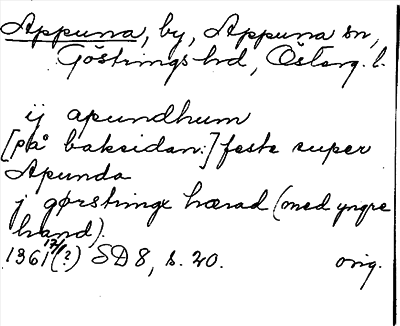 Appuna, by, Appuna sn,
Göstrings hd, Östg. l.
ij apundhum
[på baksidan:] feste super
Apunda
j gørstringx hærad (med yngre
hand).
1361 17/1(?) SD 8, s. 20. orig.